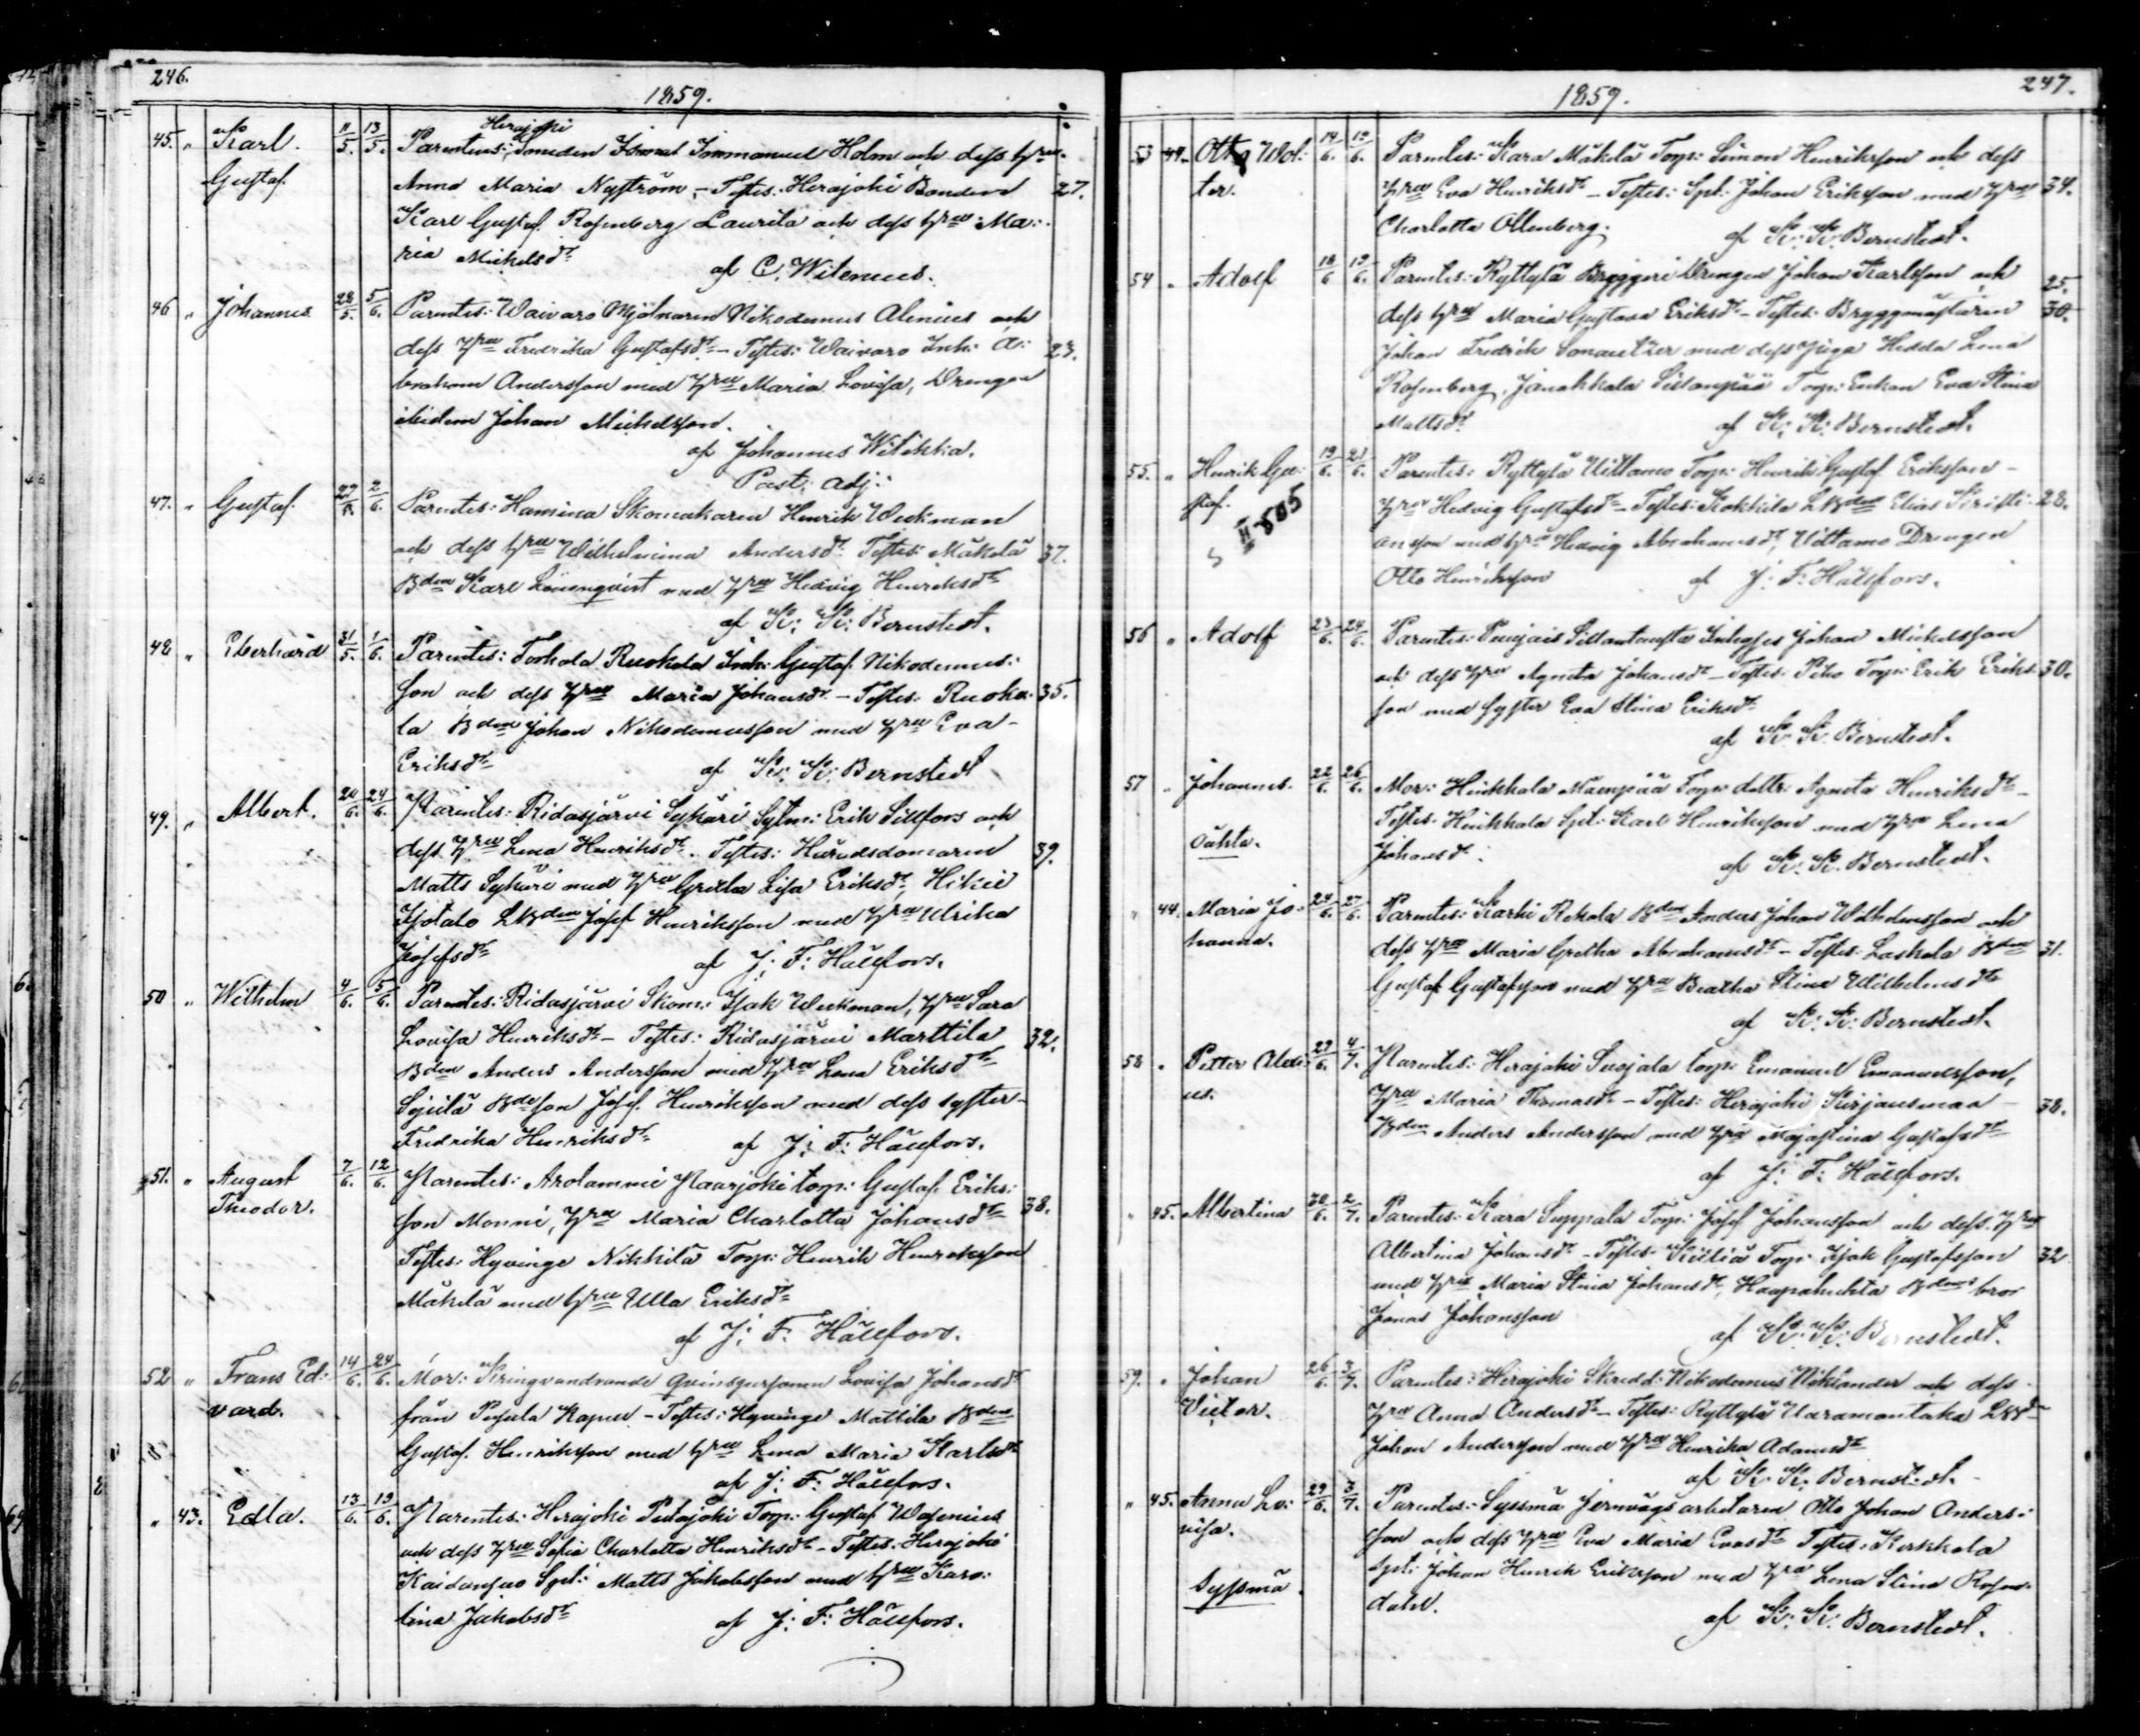 246.
1859.
45. " Karl Gustaf. 11/5. 13/5. Parentes: Herajoki Smeden Immanuel Holm och dess hru
Anna Maria Nyström, – Testes: Herajoki Bonden 27.
Karl Gustaf Rosenberg Laurila och dess hru Ma:
ria Michelsdr
af C. Witenius.
46 " Johannes 28/5. 5/6. Parentes: Waivaro Mjölnaren Nikodemus Alenius och
dess hru Fredrika Gustafsdr – Testes: Waivaro Inh: A: 23.
braham Andersson med hru Maria Lovisa, Drengen
ibidem Johan Michelsson.
af Johannes Witikka.
Past. adj:
47. " Gustaf. 29/5. 2/6. Parentes: Hamina Skomakaren Henrik Weckman
och dess hru Wilhelmina Andersdr Testes: Mäkelä 37.
Bden Karl Lönnqvist med hru Hedvig Henriksdr
af K: K: Bernstedt.
48 " Eberhard 31/5. 1/6. Parentes: Torhola Ruokola Inh: Gustaf Nikodemus:
son och dess hru Maria Johansdr – Testes: Ruoko: 35.
la Bden Johan Nikodemusson med hru Eva
Eriksdr
af K: K: Bernstedt
49. " Albert. 20/6. 24/6. Parentes: Ridasjärvi Sykäri Sytn: Erik Sillfors och
dess hru Lena Henriksdr. Testes: Häradsdomaren 39.
Matts Sykäri med hru Gretha Lisa Eriksdr, Hikiä
Isotalo LBden Josef Henriksson med hru Ulrika
Josefsdr
af J: F: Hällfors.
50 " Wilhelm 4/6. 5/6. Parentes: Ridasjärvi Skom: Isak Weckman, hru Sara
Lovisa Henriksdr – Testes: Ridasjärvi Marttila 32.
Bden Anders Andersson med hru Lena Eriksdr
Sejulä Bdeson Josef Henriksson med dess syster
Fredrika Henriksdr
af J: F: Hällfors.
51. " August Theodor. 7/6. 12/6. Parentes: Arolammi Paarjoki torp: Gustaf Eriks:
son Monni, hru Maria Charlotta Johansdr 38.
Testes: Hyvinge Nikkilä Torp: Henrik Henriksson
Mäkelä med hru Ulla Eriksdr
af J: F: Hällfors.
52 " Frans Ed: vard. 14/6. 24/6. Mor: Kringvandrande qvinspersonen Lovisa Johansdr
från Pusula Kapell – Testes: Hyvinge Mattila Bden
Gustaf Henriksson med hru Lena Maria Karlsdr
af J: F: Hällfors.
" 43. Edla. 13/6. 19/6. Parentes: Herajoki Putajoki Torp: Gustaf Wasenius
och dess hru Sofia Charlotta Henriksdr – Testes: Herajoki
Kaidansuo Spt: Matts Jakobsson med hru Karo:
lina Jakobsdr
af J: F: Hällfors.
247.
1859.
53 Otto Wol: ter. 14/6. 19/6. Parentes: Kara Mäkelä Torp: Simon Henriksson och dess
hru Eva Henriksdr – Testes: Spt: Johan Eriksson med hru 34.
Charlotta Ollenberg.
af K: K: Bernstedt.
54 " Adolf 18/6 19/6. Parentes: Ryttylä Bryggeri Drengen Johan Karlsson och 25.
dess hru Maria Gustava Eriksdr – Testes: Bryggmästaren 30.
Johan Fredrik med dess Piga Hedda Lena
Rosenberg, Janakkala Sidanpää Torp: Enkan Eva Stina
Mattsdr
af K: K: Bernstedt.
55. " Henrik Gu: staf. 19/6. 21/6. Parentes: Ryttylä Uittamo Torp: Henrik Gustaf Eriksson –
hru Hedvig Gustafsdr – Testes: Kokkila LBden Elias Kristi: 28.
ansson med hru Hedvig Abrahamsdr, Uittamo Drengen
Otto Henriksson
af J: F: Hällfors.
II 805
56 " Adolf 23/6. 24/6. Parentes: Punjais Sillantausta Inhyses Johan Michelsson
och dess hru Agneta Johansdr – Testes: Piko Torp: Erik Eriks: 30.
son med syster Eva Stina Eriksdr
af K: K: Bernstedt.
57 " Johannes. 22/6. 26/6. Mor: Hinkkala Mäenpää Torp: dottr: Agneta Henriksdr –
oäkta. Testes: Hinkkala Spt: Karl Henriksson med hru Lena
Johansdr.
af K: K: Bernstedt.
" 44. Maria Jo: hanna. 24/6. 27/6. Parentes: Karhi Rekola Bden Anders Johan Wilhelmsson och
dess hru Maria Gretha Abrahamsdr – Testes: Laskela Bden 31.
Gustaf Gustafsson med hru Beatha Stina Wilhelmsdr
af K: K: Bernstedt.
58 " Petter Alexi: us. 29/6. 4/7. Parentes: Herajoki Suojala torp: Emanuel Emanuelsson,
hru Maria Thomasdr – Testes: Herajoki Kirjausmaa – 38.
Bden Anders Andersson med hru Majastina Gustafsdr
af J: F: Hällfors.
" 45. Albertina 30/6. 2/7. Parentes: Kara Seppälä Torp: Josef Johansson och dess hru
Albertina Johansdr – Testes: Torp: Isak Gustafsson 32
med hru Maria Stina Johansdr, Haapahuhta Bdens bror
Jonas Johansson
af K: K: Bernstedt.
59. " Johan Victor. 26/6. 3/7. Parentes: Herajoki Skredd: Nikodemus Niklander och dess
hru Anna Andersdr – Testes: Ryttylä Uaramontaka LBd
Johan Andersson med hru Henrika Adamsdr
af K: K: Bernstedt.
" 45. Anna Lo: visa. 29/6. 3/7. Parentes: Syssmä Jernvägsarbetaren Otto Johan Anders:
son och dess hru Eva Maria Evasdr Testes: Kerkkola
Syssmä. Spt: Johan Henrik Eriksson med hru Lena Stina Rosen:
dahl.
af K: K: Bernstedt.